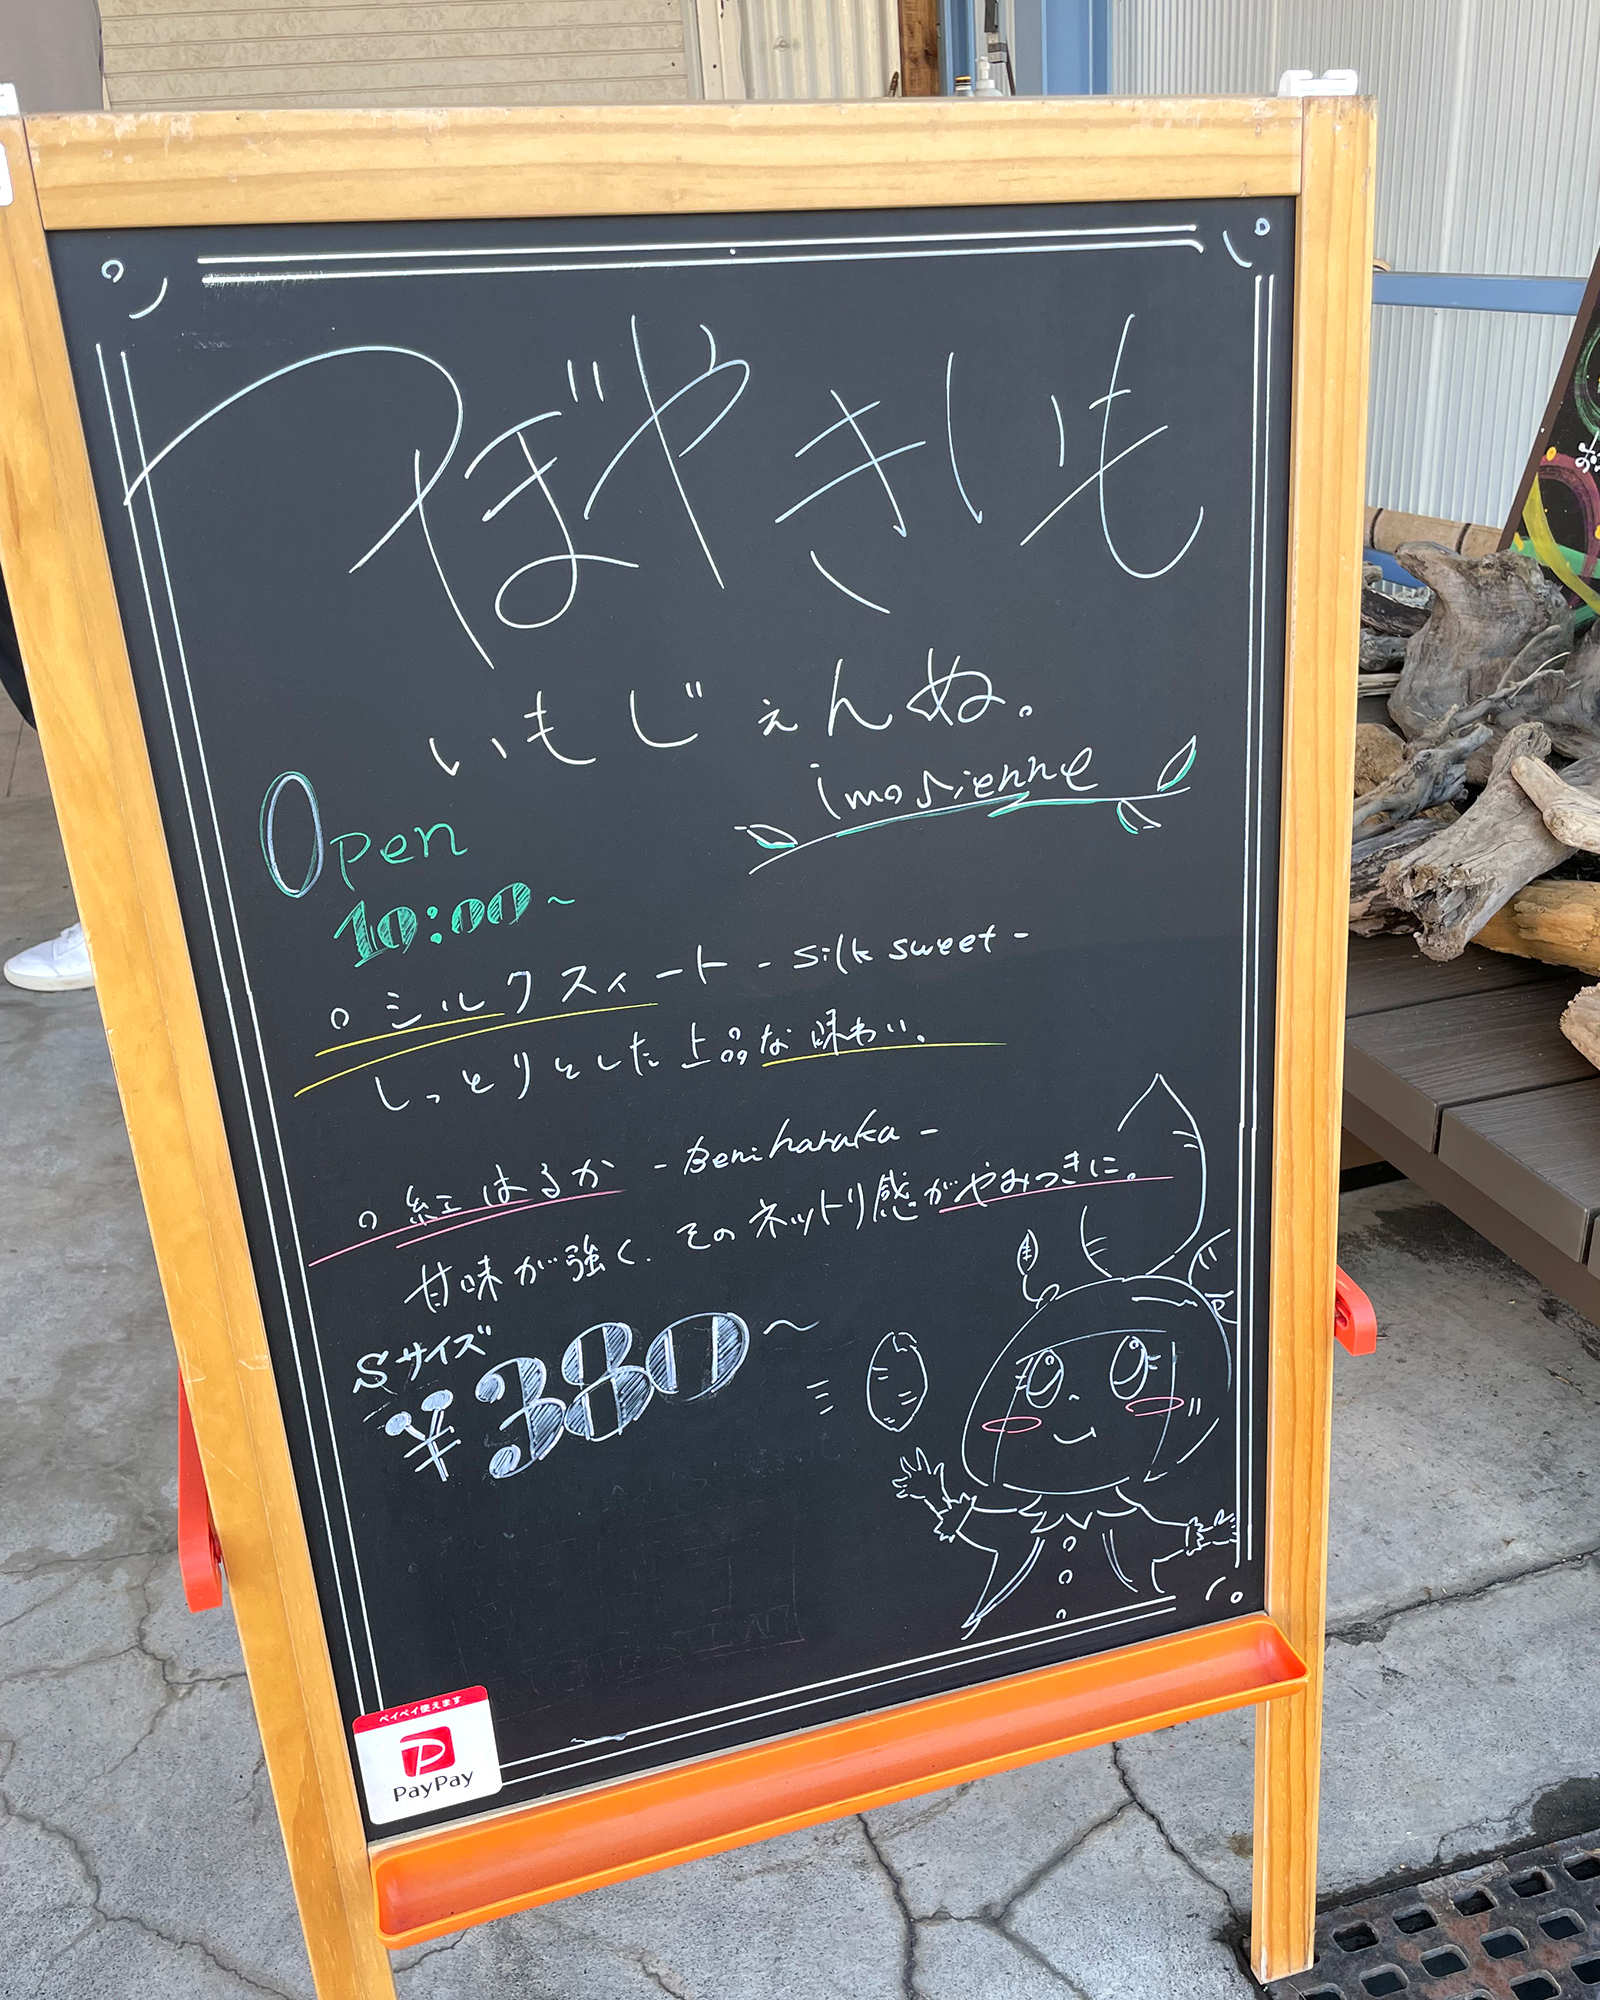 つぼやきいも
いもじぇんぬ。
imosienne
Open
10:00~
○ シルクスィート - silk sweet -
しっとりとした上品な味わい。
○ 紅はるか - Beni haruka -
甘味が強く、そのネットリ感がやみつきに。
Sサイズ
¥380~
ペイペイ使えます
PayPay